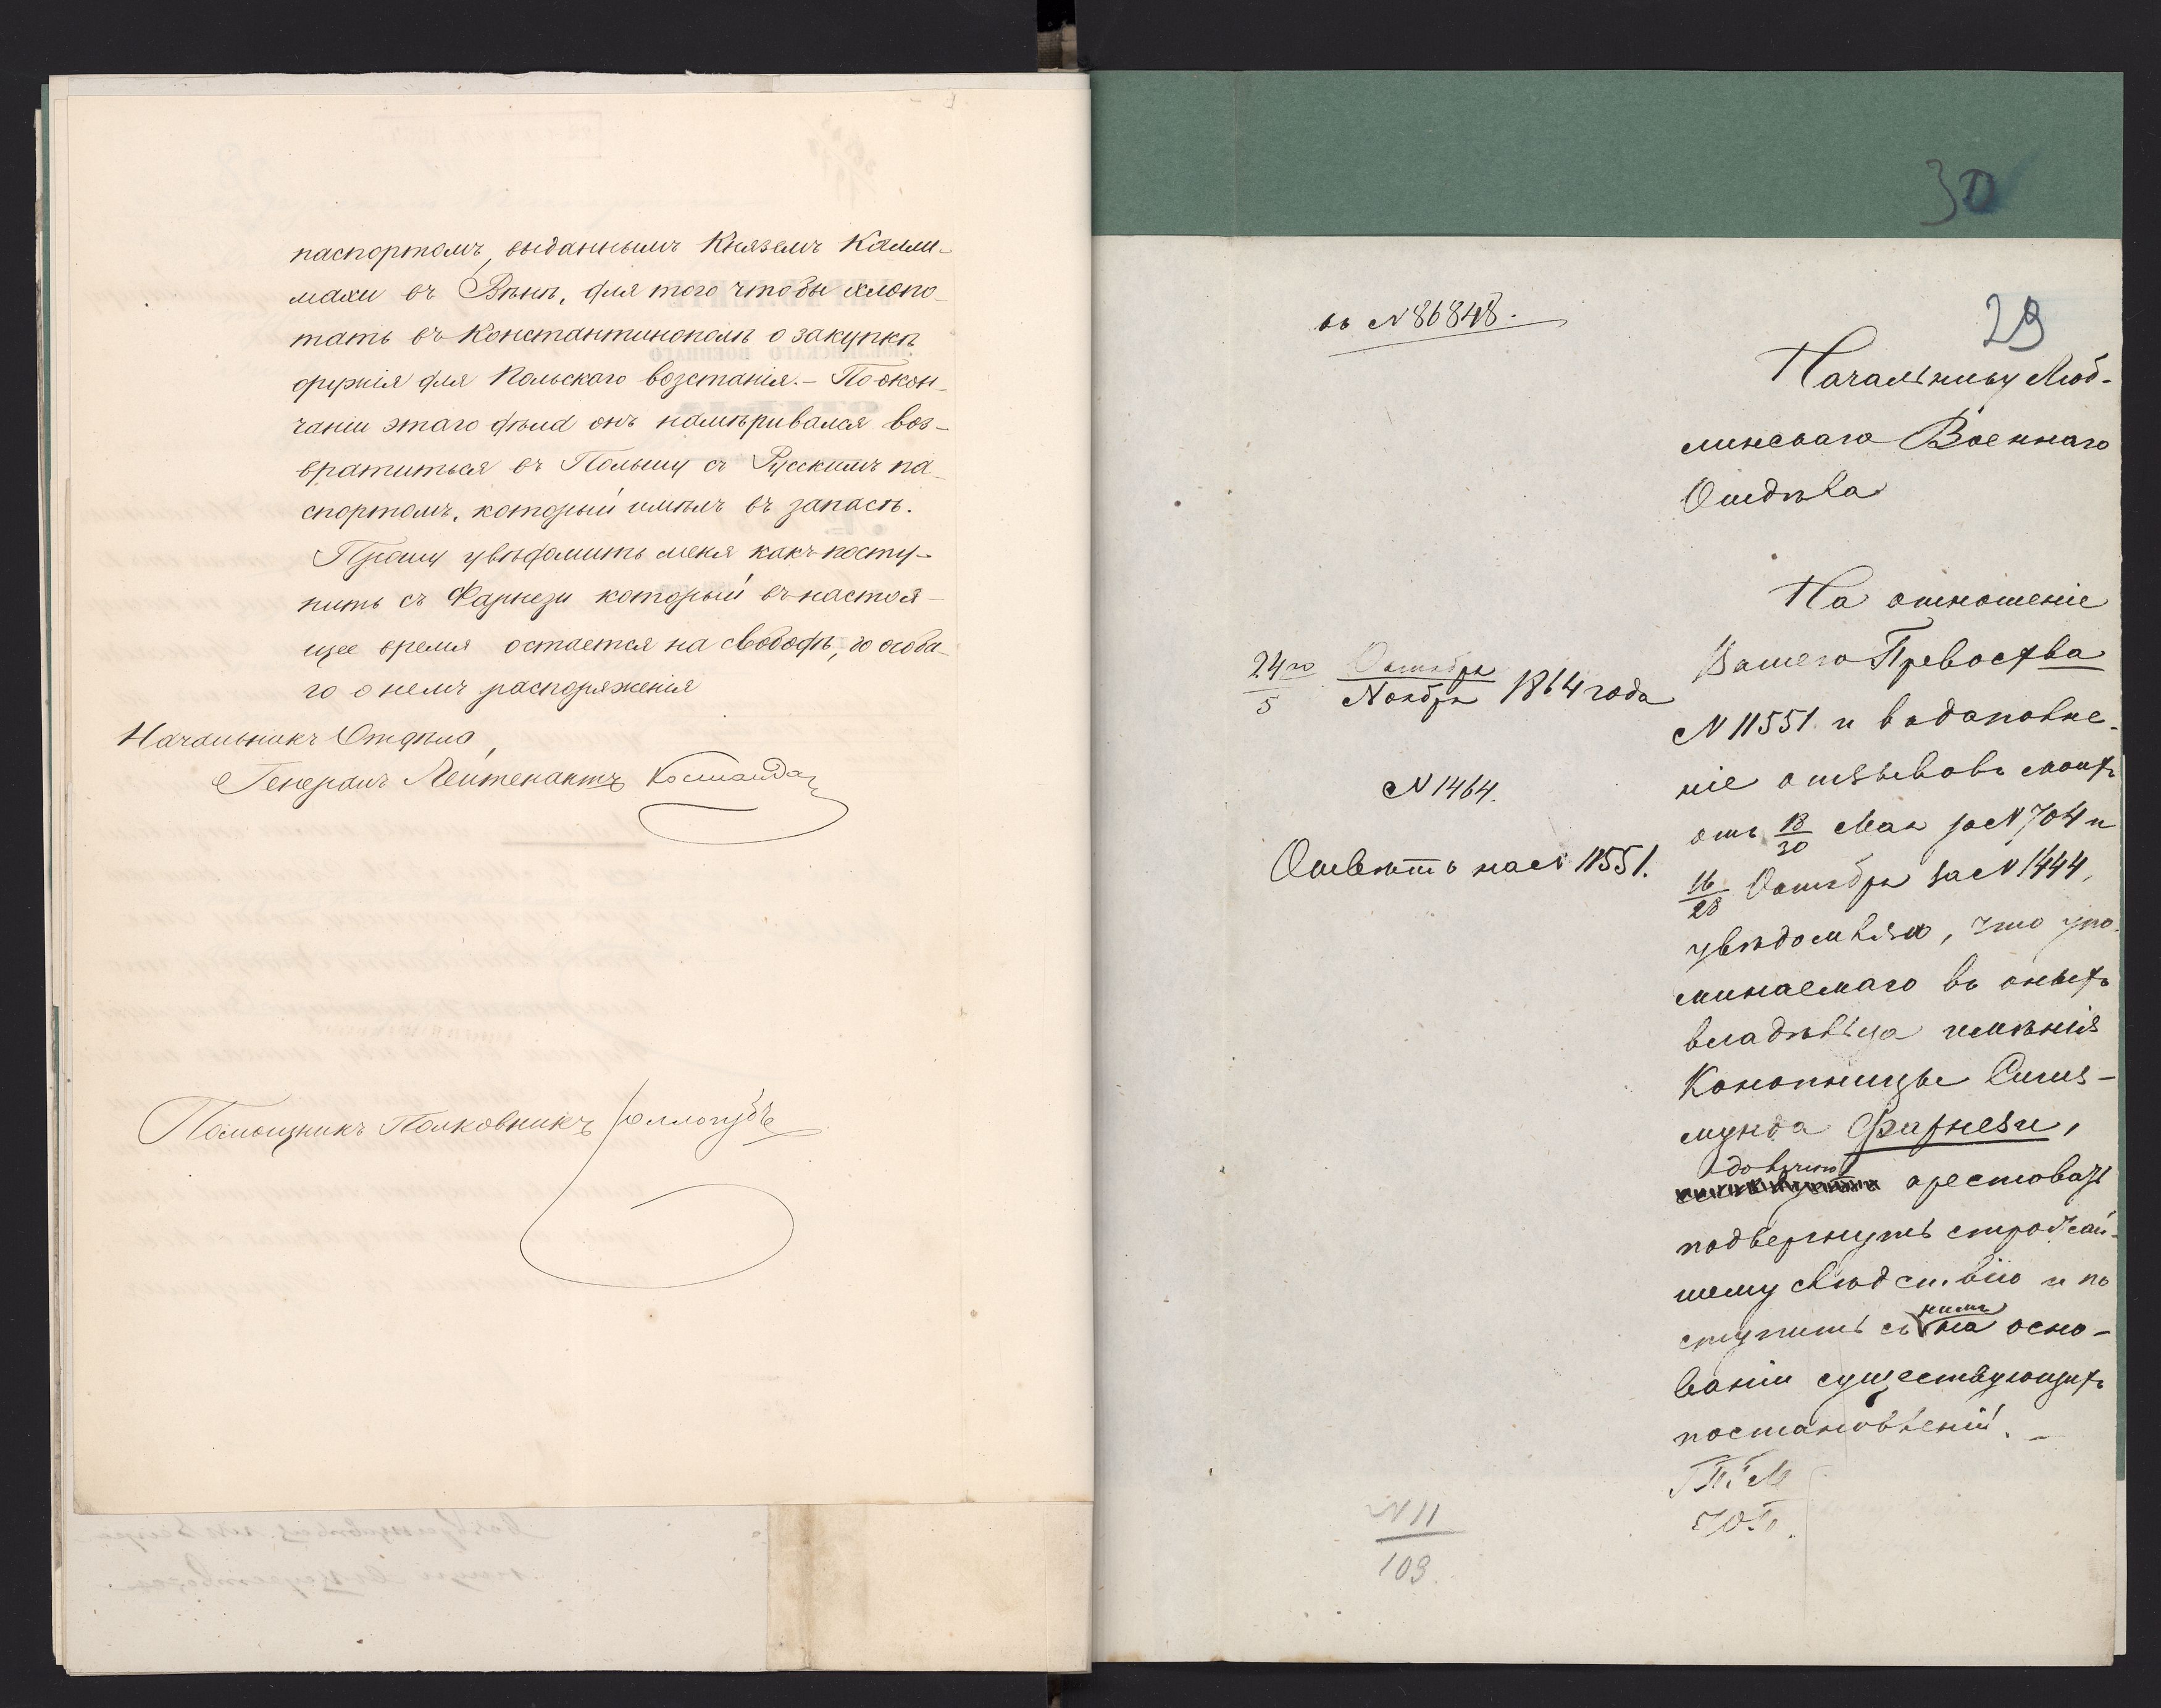 паспортомъ, выданнымъ Княземъ Калли-
махи въ Вѣнѣ, для того чтобы хлопо-
тать въ Константинополѣ о закупкѣ
оружія для Польскаго возстанія. – По окон-
чаніи этаго дѣла онъ намѣривался воз-
вратиться въ Польшу съ Русскимъ па-
спортомъ, который имѣлъ въ запасѣ.
Прошу увѣдомить меня какъ посту-
пить съ Фарнези который въ настоя-
щее время остается на свободѣ, до особа-
го о немъ распоряженія
Начальникъ Отдѣла,
Генералъ Лейтенантъ
Помощникъ Полковникъ
30
29
къ N 86848.
Начальнику Люб-
линскаго Военнаго
Отдѣла
24го Октября
5 Ноября 1864 года
N 1464.
Отвѣтъ на N 11551.
На отношеніе
Вашего Превосхва
N 11551 и въ дополне-
ніе отзывовъ моихъ
отъ 18/30 Мая за N 704 и
16/28 Октября за N 1444,
увѣдомляю, что упо-
минаемаго въ оныхъ
владѣльца имѣнія
Конопницы Сигиз-
мунда Фарнези,
арестовать
подвергнуть строжай-
шему слѣдствію и по
ступить съ нимъ на осно-
ваніи существующихъ
постановленій. –
N 11
103.